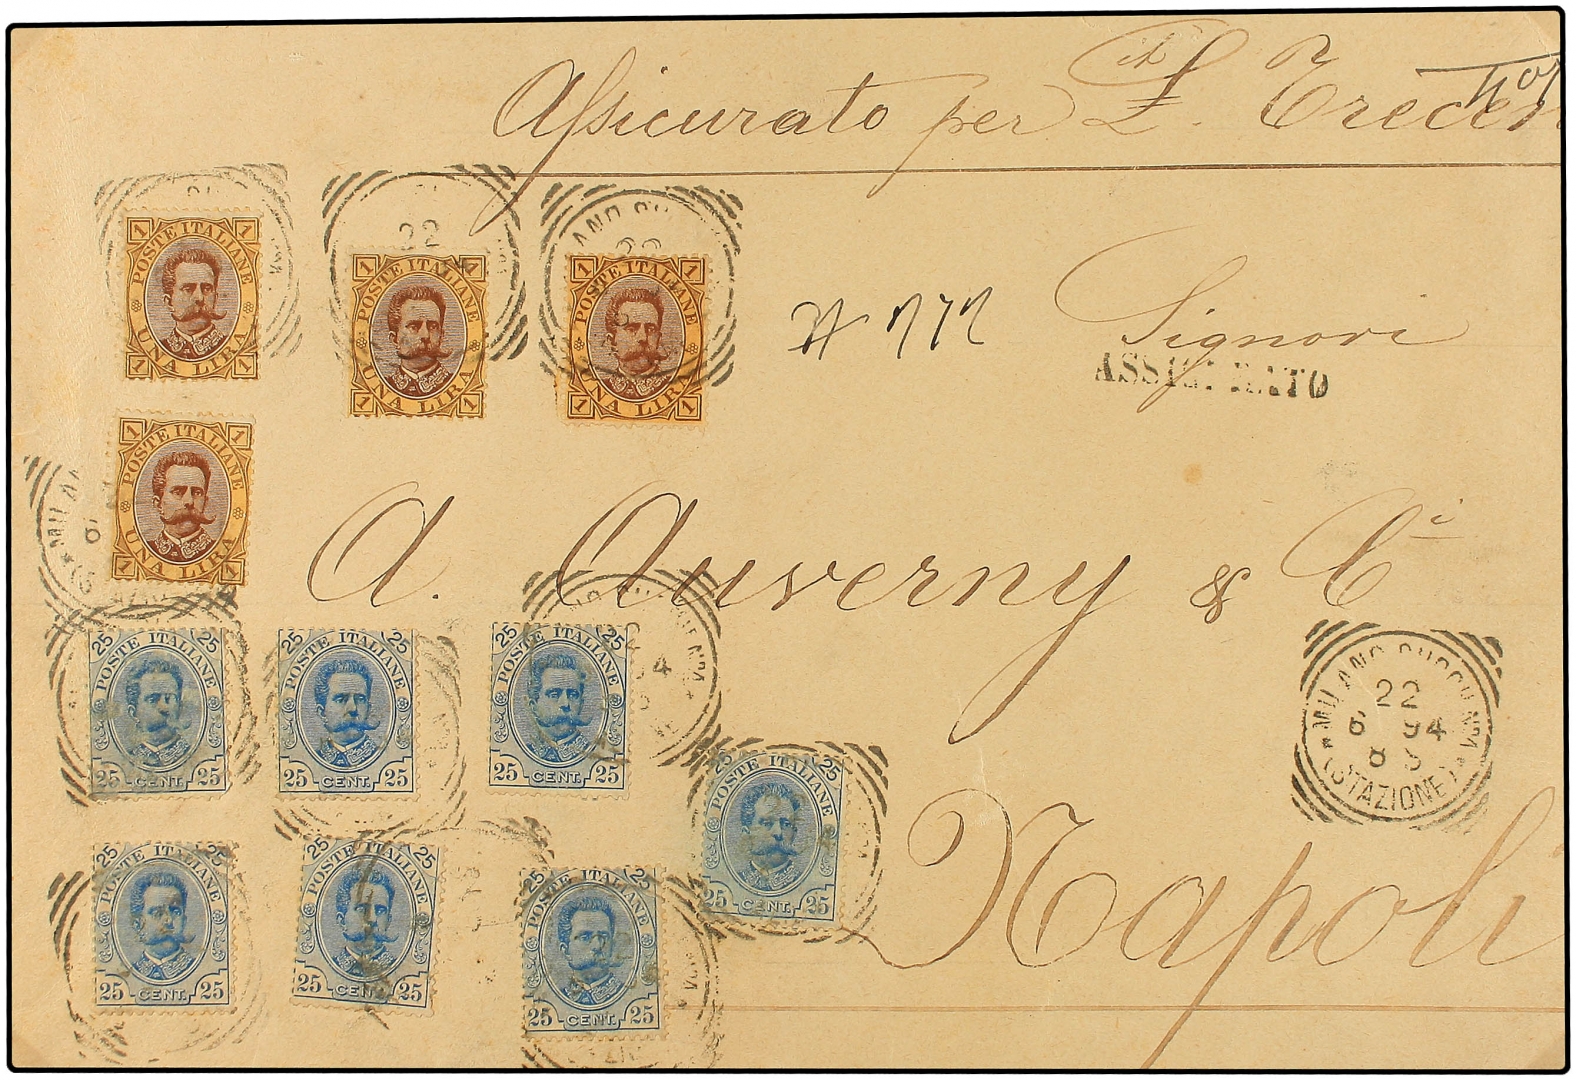 Assicurato per £.
Signori
ASSICURATO
A. Auverny & Ci
Napoli
1 1
POSTE ITALIANE
UNA LIRA
1 1
1 1
POSTE ITALIANE
UNA LIRA
1 1
1 1
POSTE ITALIANE
UNA LIRA
1 1
1 1
POSTE ITALIANE
UNA LIRA
1 1
25 25
POSTE ITALIANE
25 CENT. 25
25 25
POSTE ITALIANE
25 CENT. 25
25 25
POSTE ITALIANE
25 CENT. 25
25 25
POSTE ITALIANE
25 CENT. 25
25 25
POSTE ITALIANE
25 CENT. 25
25 25
POSTE ITALIANE
25 CENT. 25
25 25
POSTE ITALIANE
25 CENT. 25
MILANO SUCCU N°1
22
6 94
8 S
(STAZIONE)